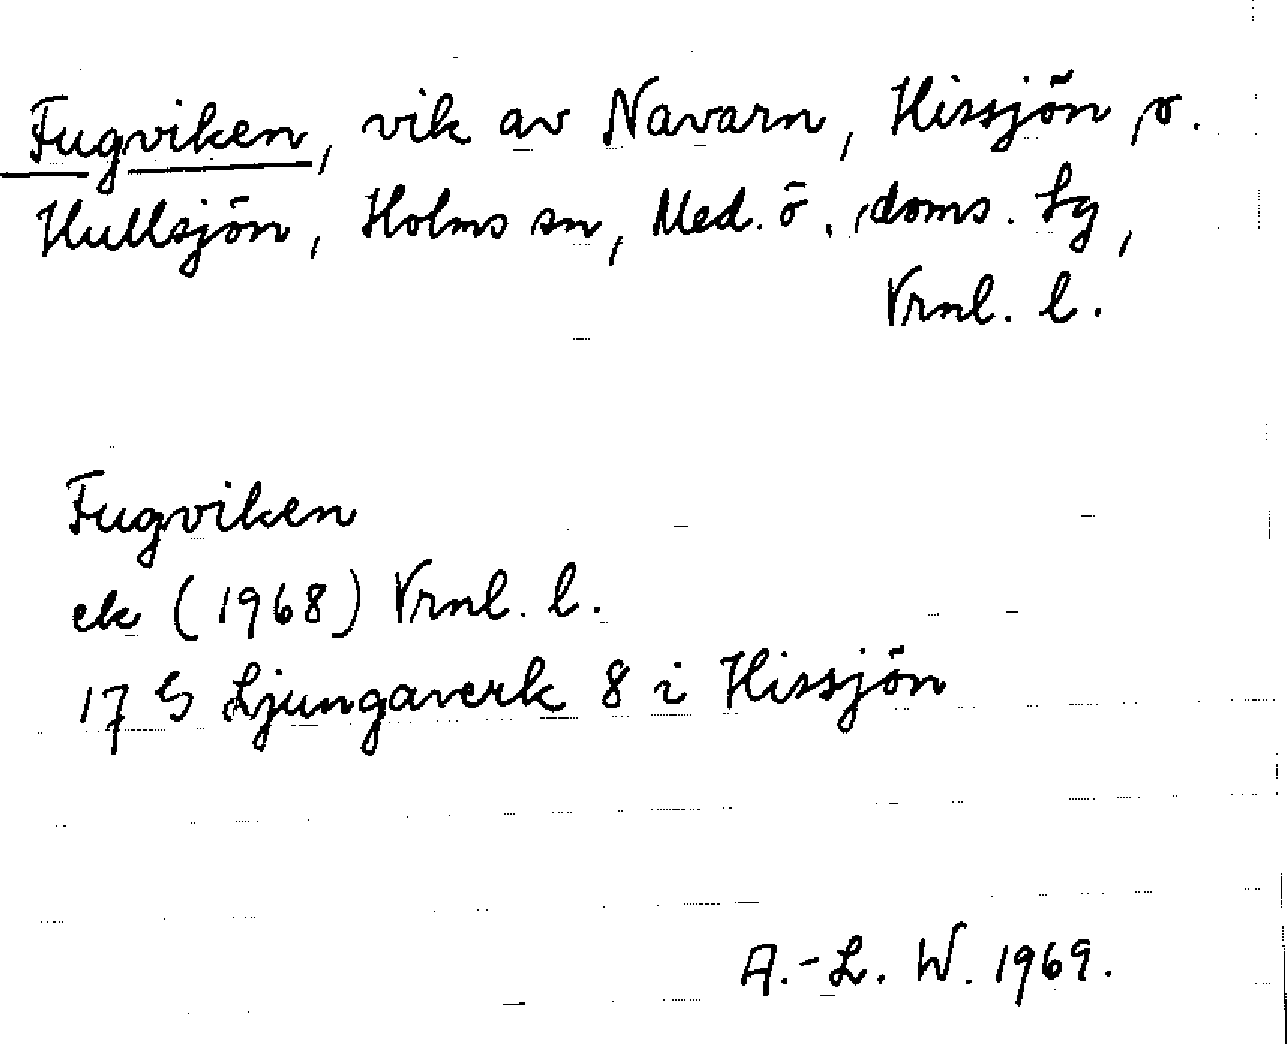 Fugviken, vik av Navarn, Hissjön, o.
Hullsjön, Holms sn, Med. ö. doms. lg,
Vrnl. l.
Fugviken
ek (1968) Vrnl. l.
17 G Ljungaverk 8 i Hissjön
A.-L. W. 1969.